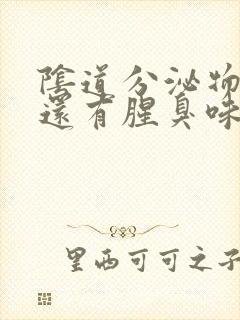 陰道分泌物
還有腥臭味
里西可可之子